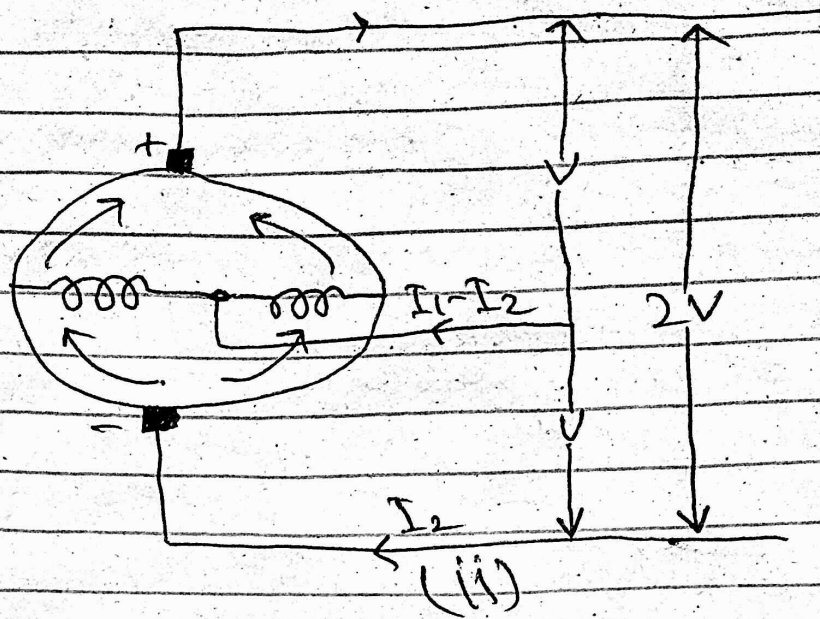 +
V
I₁-I₂
2V
-
V
I₂
(ii)